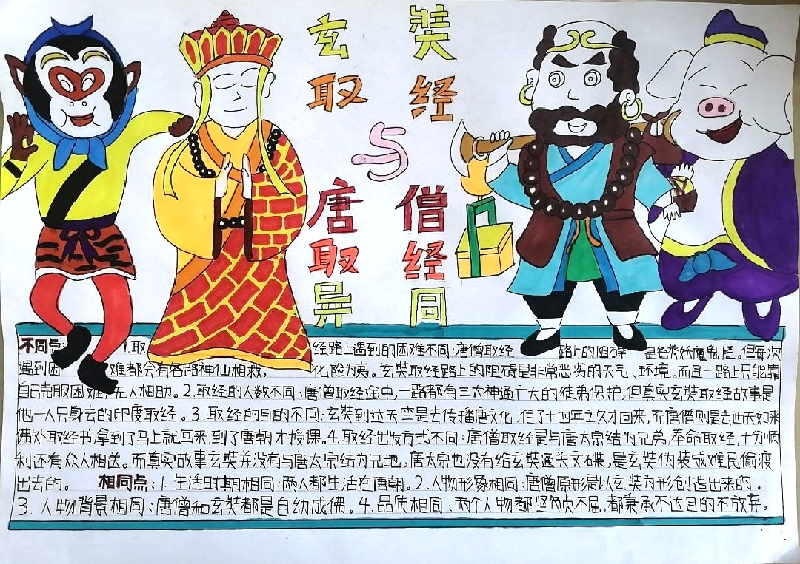 玄奘
取经
与
唐僧
取经
异同
不同点：1.取经路上遇到的困难不同：唐僧取经路上的阻碍是各类妖魔制造。但每次
遇到困难都会有各路神仙相救，化险为夷。玄奘取经路上的阻碍是非常恶劣的天气、环境，而且一路上只能靠
自己克服困难，无人相助。2.取经的人数不同：唐僧取经途中，一路都有三个神通广大的徒弟保护，但真实玄奘取经故事是
他一人只身去的印度取经。3.取经的目的不同：玄奘到达天竺是去传播唐文化，住了十四年之久才回来，而唐僧则是去西天如来
佛处取经书，拿到了马上就回来，到了唐朝才授课。4.取经出发方式不同：唐僧取经是与唐太宗结为兄弟，奉命取经，十分顺
利还有众人相送。而真实故事玄奘并没有与唐太宗结为兄弟，唐太宗也没有给玄奘通关文碟，是玄奘伪装成难民偷渡
出去的。 相同点：1.生活时期相同：两人都生活在唐朝。2.人物形象相同：唐僧原形是以玄奘为形创造出来的。
3.人物背景相同：唐僧和玄奘都是自幼成佛。4.品质相同：两个人物都坚贞不屈，都秉承不达目的不放弃。